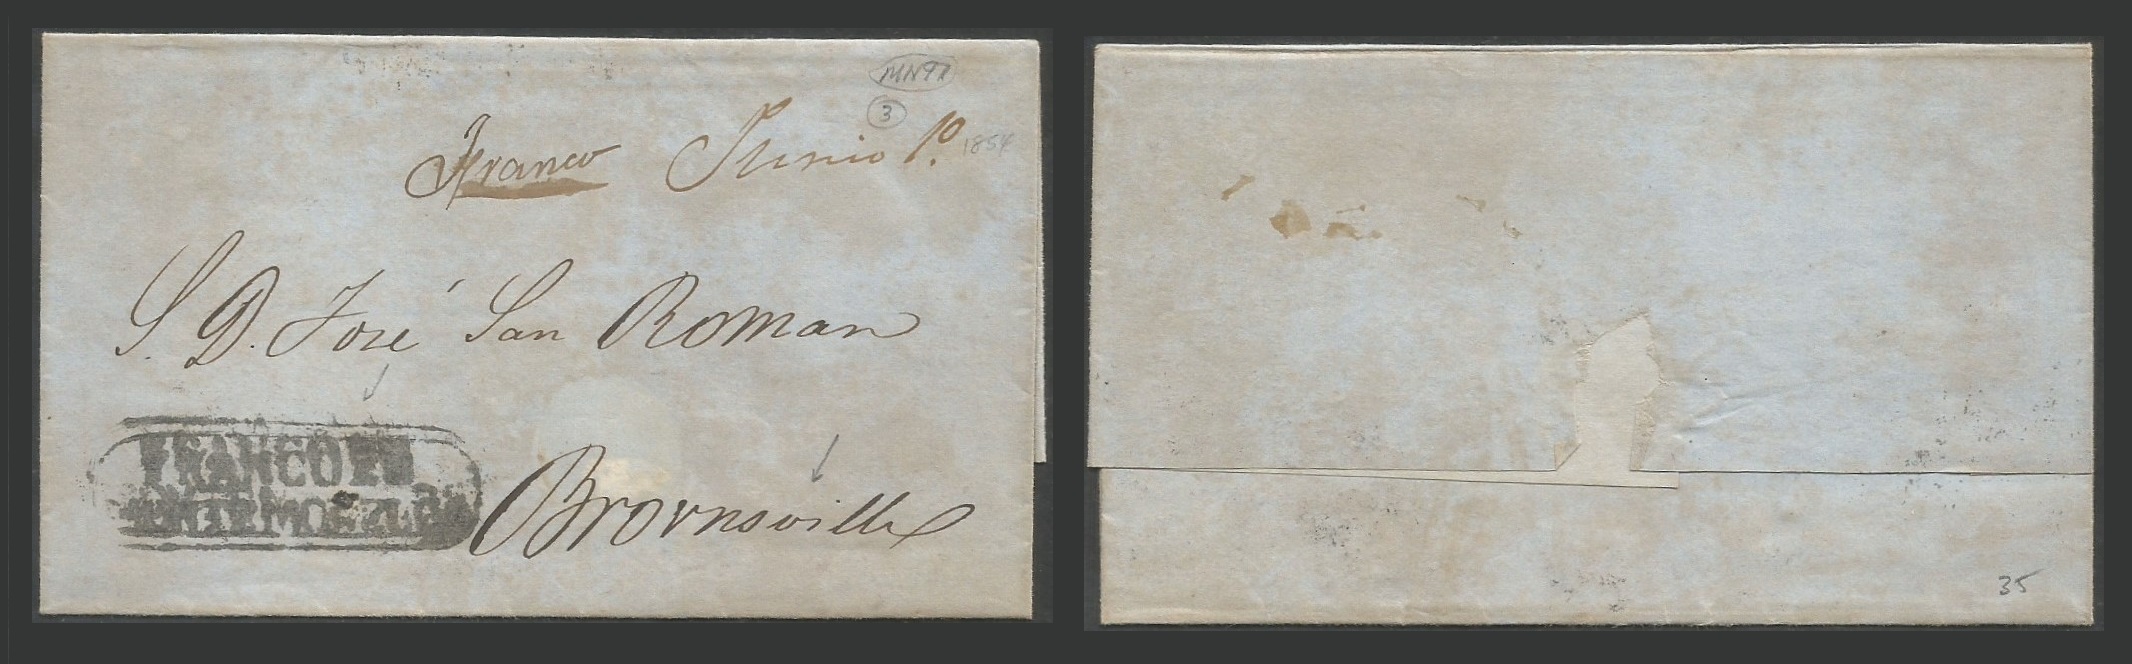 MNTR
3
Franco Junio 1º. 1854
S. D. José San Roman
FRANCO EN
MONTEMORELOS
Brownsville
35